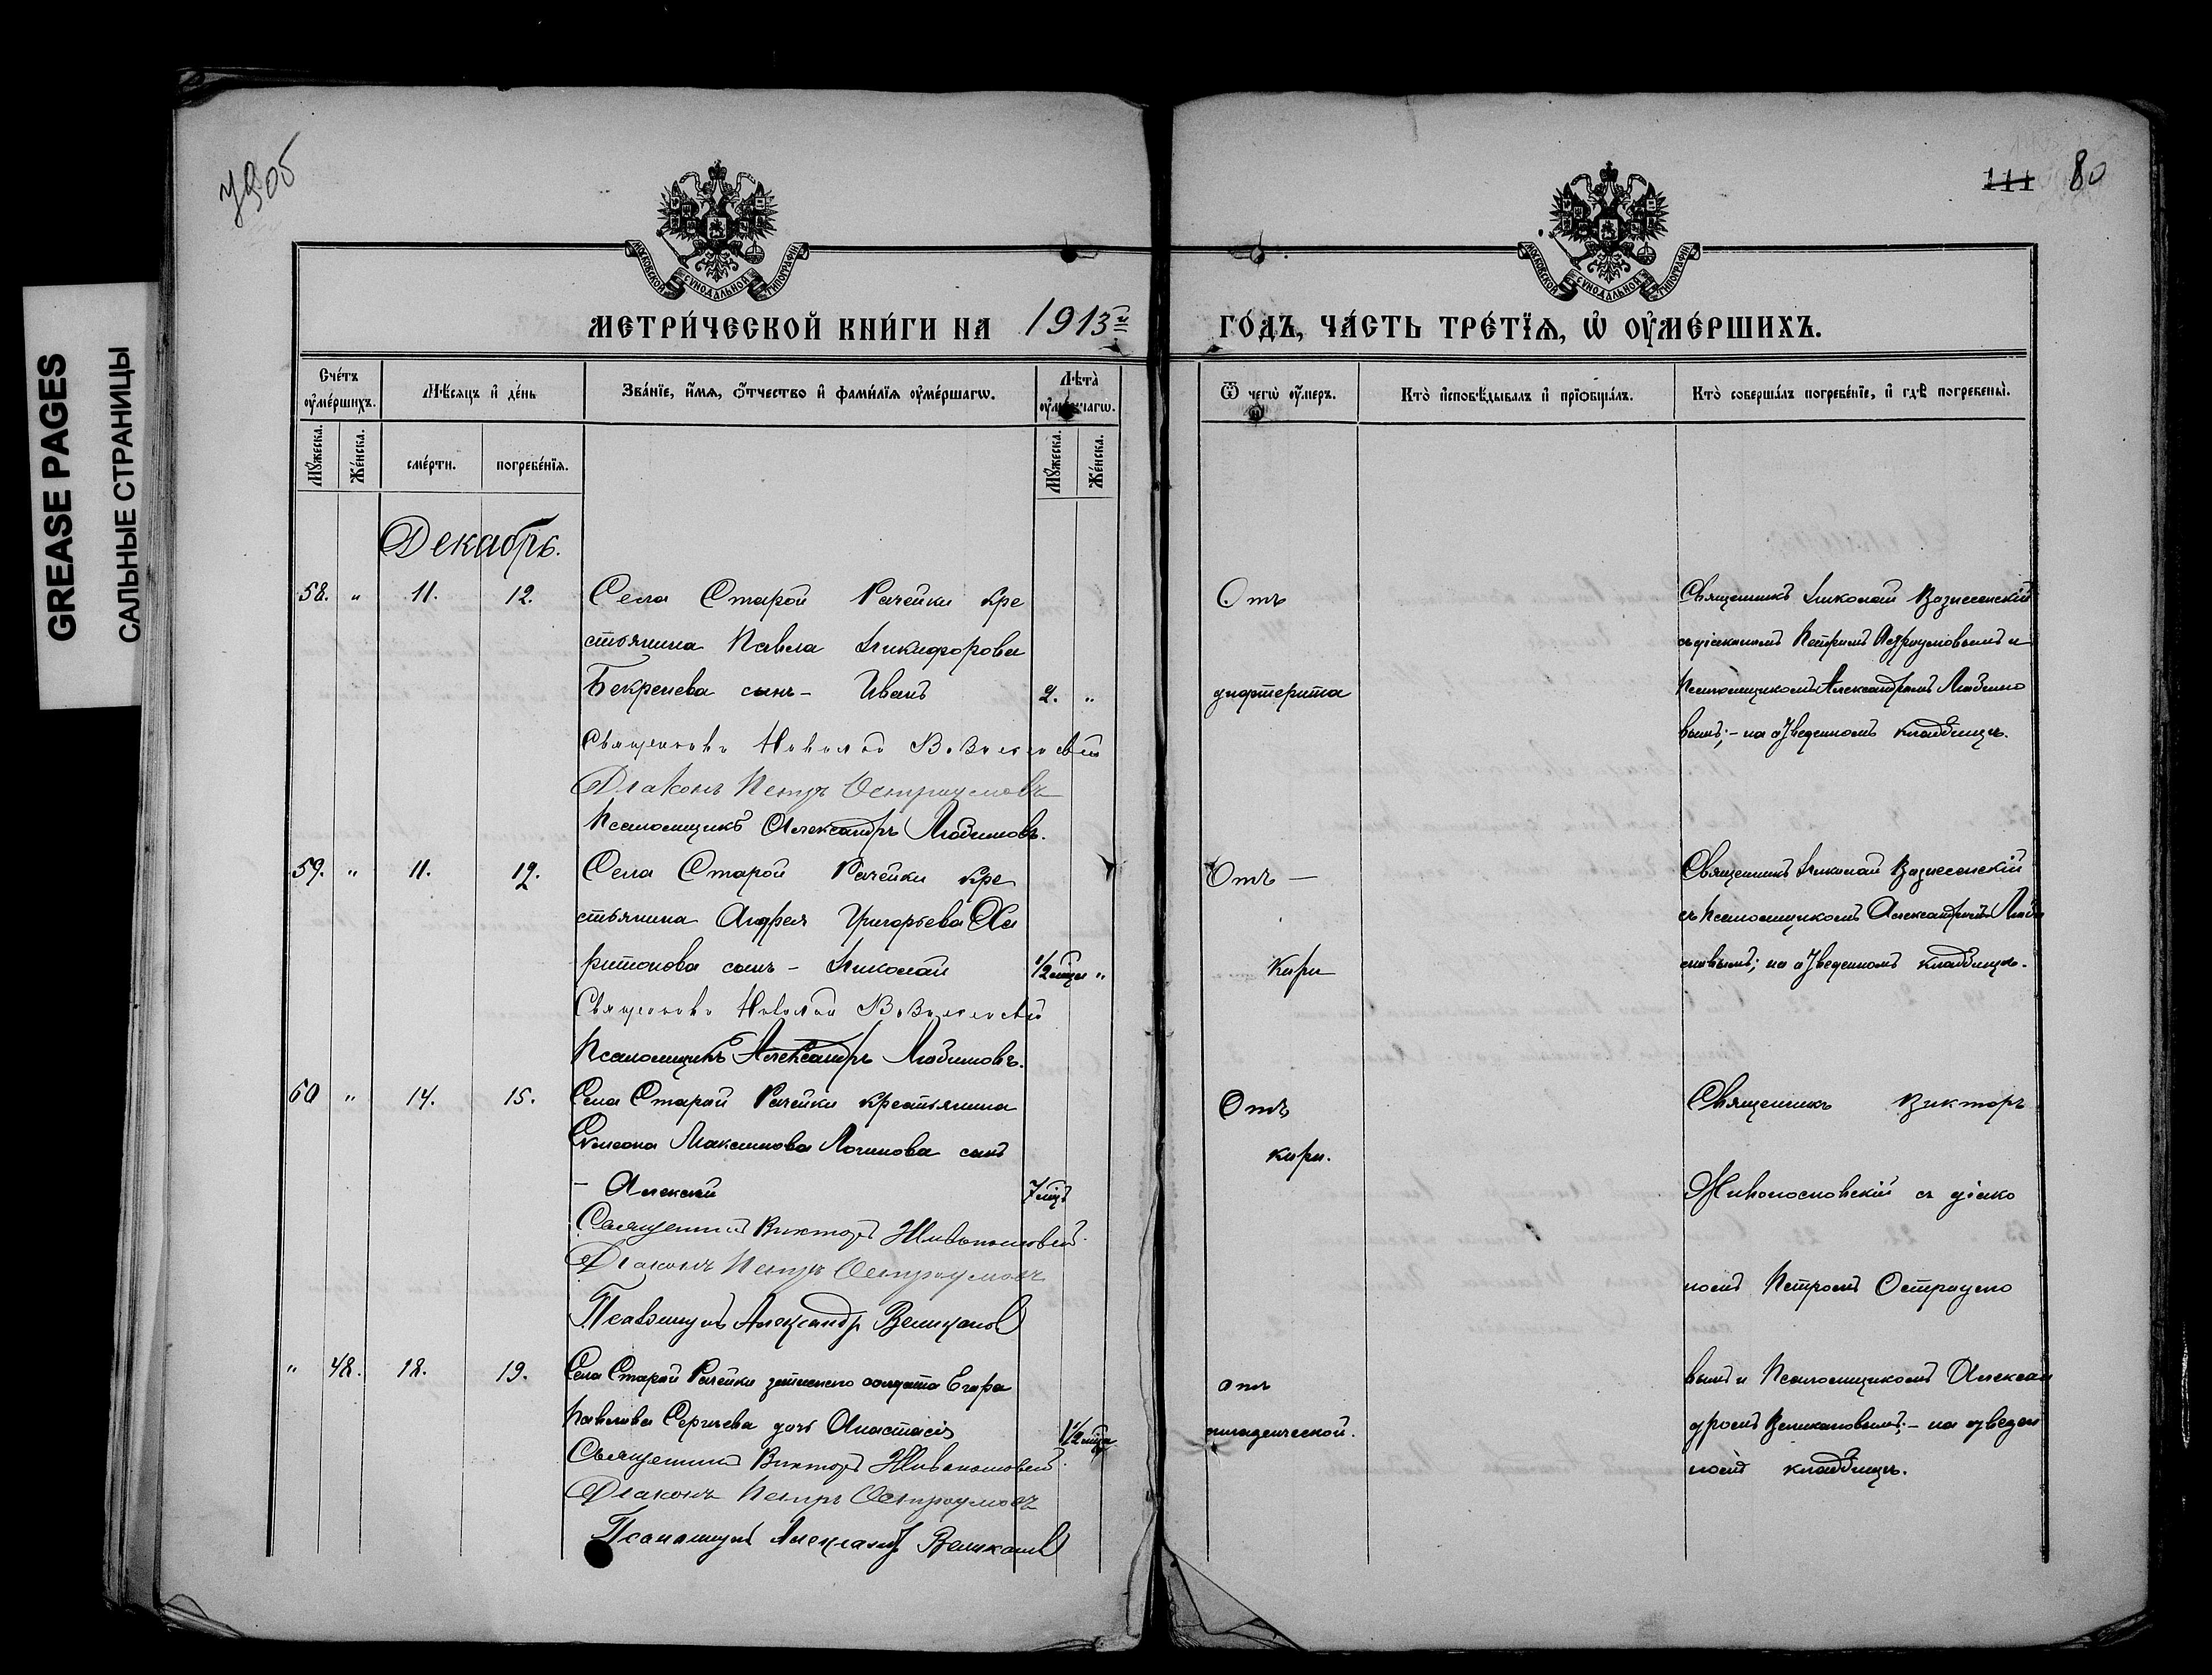 GREASE PAGES
САЛЬНЫЕ СТРАНИЦЫ
80
111
МОСКОВСКОЙ СѴНОДАЛЬНОЙ ТИПОГРАФІИ
МОСКОВСКОЙ СѴНОДАЛЬНОЙ ТИПОГРАФІИ
МЕТРИ́ЧЕСКОЙ КНИ́ГИ НА 1913й
ГО́ДЪ, ЧА́СТЬ ТРЕ́ТЇѦ, Ѡ҆ ОУ҆МЕ́РШИХЪ.
Сче́тъ оу҆ме́ршихъ.
Мѣ́сяцъ и҆ де́нь
Зва́нїе, и҆́мѧ, ѻ҆́тчество и҆ фами́лїѧ оу҆ме́ршагѡ.
Лѣ́та оу҆ме́ршагѡ.
Ѿ чегѡ̀ оу҆́меръ.
Кто̀ и҆сповѣ́дывалъ и҆ прїѻбща́лъ.
Кто̀ соверша́лъ погребе́нїе, и҆ гдѣ̀ погребены̀.
Мꙋ́жеска.
Же́нска.
сме́рти.
погребе́нїѧ.
Мꙋ́жеска.
Же́нска.
Декабрь.
58. " 11. 12. Села Старой Рачейки кре
стьянина Павла Никифорова
Бекренева сынъ – Иванъ 2. "
Священникъ Николай Вознесенскій
Діаконъ Петръ Остроумовъ
Псаломщикъ Александръ Любимовъ.
Отъ
дифтерита
Священникъ Николай Вознесенскій
съ діакономъ Петромъ Остроумовымъ и
Псаломщикомъ Александромъ Любимо
вымъ; – на отведенномъ кладбищѣ.
59. " 11. 12. Села Старой Рачейки кре
стьянина Андрея Григорьева Ха
ритонова сынъ – Николай 1/2 мѣца "
Священникъ Николай Вознесенскій
Псаломщикъ Александръ Любимовъ.
Отъ –
кори
Священникъ Николай Вознесенскій
съ Псаломщикомъ Александромъ Люби
мовымъ; на отведенномъ кладбищѣ.
60 " 14. 15. Села Старой Рачейки крестьянина
Симеона Максимова Логинова сынъ
– Алексей 7 мѣц
Священникъ Викторъ Живоносновскій
Діаконъ Петръ Остроумовъ
Псаломщикъ Александръ Великановъ
Отъ
кори.
Священникъ Викторъ
Живоносновскій съ діако
номъ Петромъ Остроумо
вымъ и Псаломщикомъ Алексан
дромъ Великановымъ; – на отведен
номъ кладбищѣ.
" 48. 18. 19. Села Старой Рачейки запаснаго солдата Егора
Павлова Сергѣева дочь Анастасія 1 1/2 мѣца
Священникъ Викторъ Живоносновскій
Діаконъ Петръ Остроумовъ
Псаломщикъ Александръ Великановъ
отъ
младенческой.